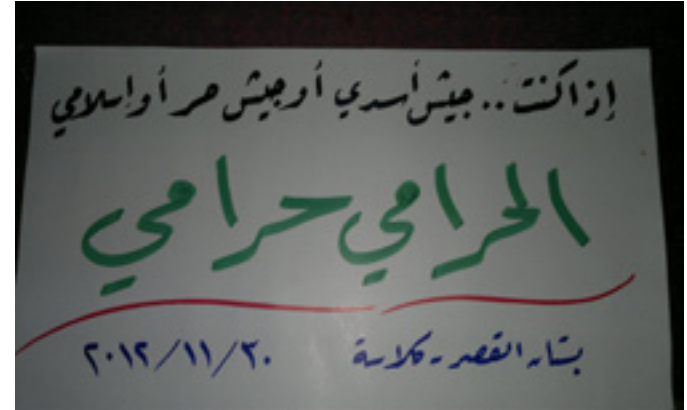 إذا كنت.. جيش أسدي أو جيش حر أو إسلامي
الحرامي حرامي
بستان القصر - كلاسة ٢٠١٢/١١/٣٠